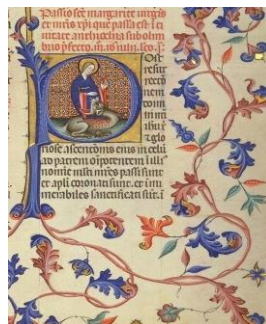 Passio sce margarite uirgis
et mris xpi que passa est i
ciuitate anthiochia sub olim
brio pfecto
Ost
resur
rectio
nem
domi
ni
ihu x
glo
riose ascentionis eius in celu
ad patrem omnipotentem i illi
nomine msti mres passi sunt
et apli coronati sunt. et inu
merabiles sanctificati sut. i